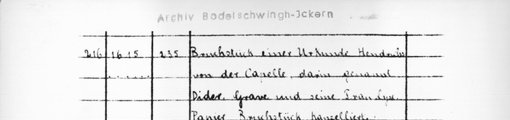 Archiv Bodelschwingh-Ickern
216 1615 235 Bruchstück einer Urkunde Hendrichs
von der Capelle, darin genannt
Dider. Grave und seine Frau Lyse.
Papier. Bruchstück, kanzelliert.